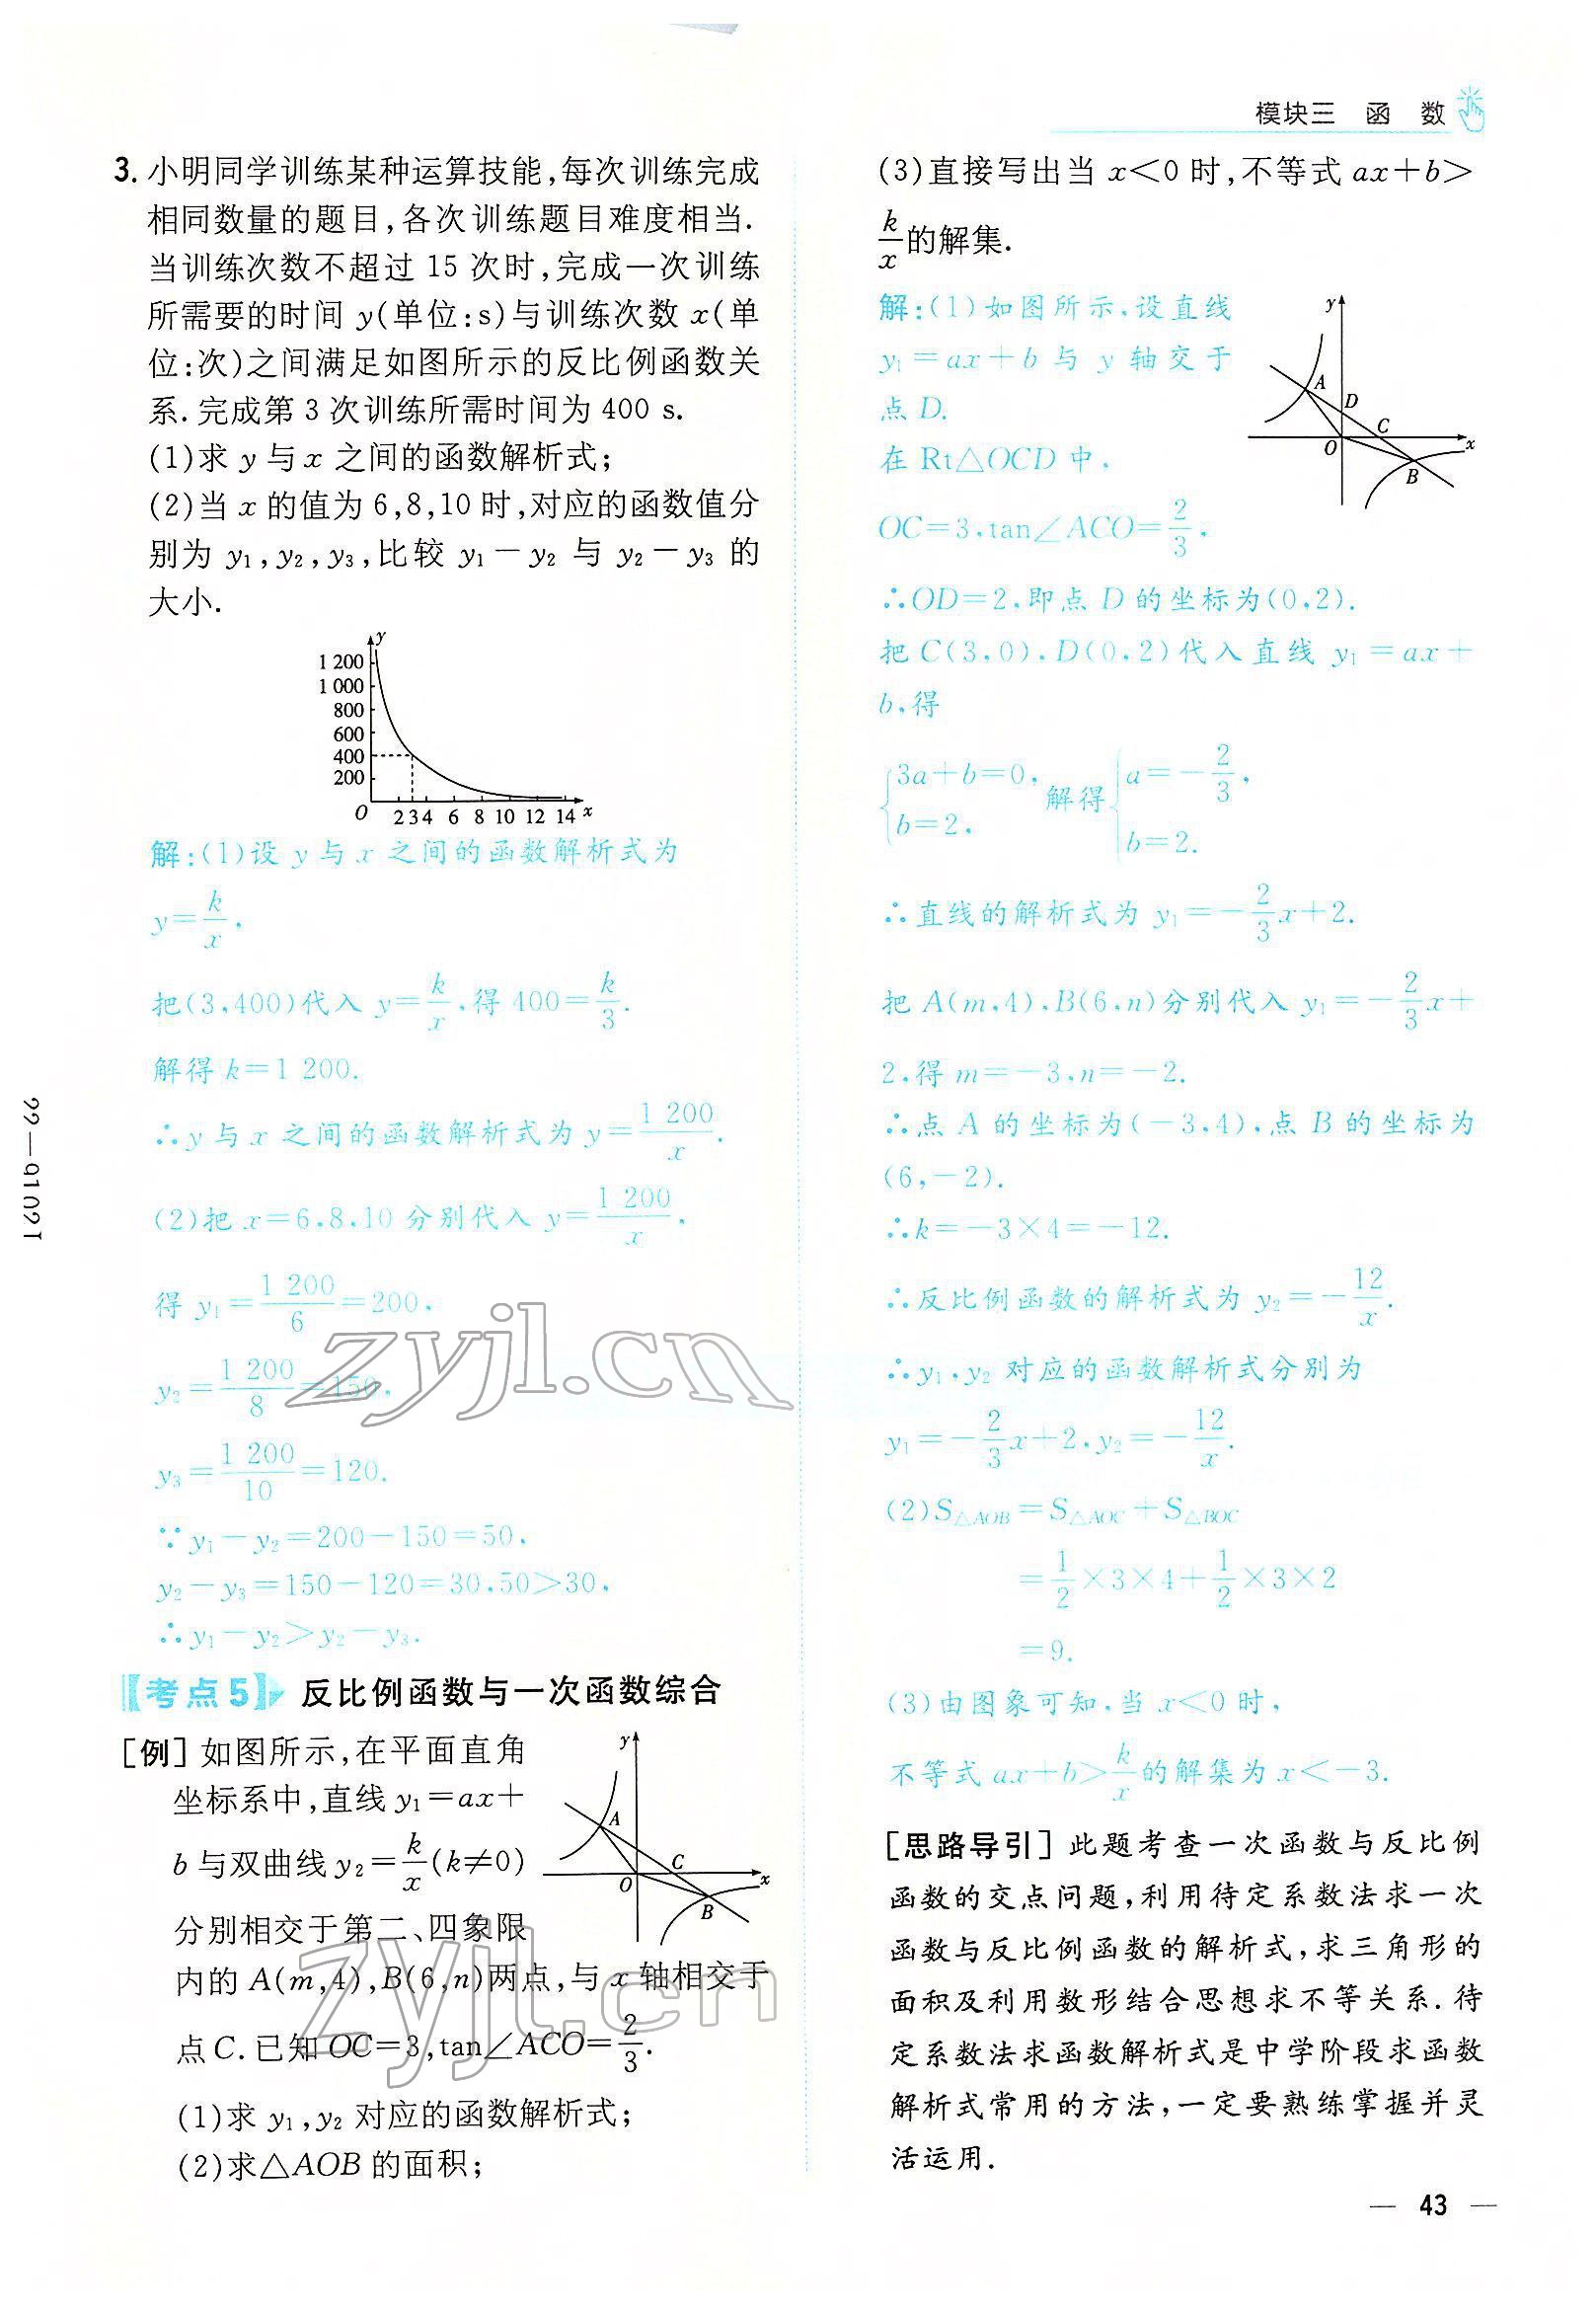 模块三 函 数
3. 小明同学训练某种运算技能,每次训练完成
相同数量的题目,各次训练题目难度相当.
当训练次数不超过 15 次时,完成一次训练
所需要的时间 y(单位:s)与训练次数 x(单
位:次)之间满足如图所示的反比例函数关
系.完成第 3 次训练所需时间为 400 s.
(1)求 y 与 x 之间的函数解析式;
(2)当 x 的值为 6,8,10 时,对应的函数值分
别为 y₁,y₂,y₃,比较 y₁-y₂ 与 y₂-y₃ 的
大小.
y
1 200
1 000
800
600
400
200
O 2 3 4 6 8 10 12 14 x
解:(1)设 y 与 x 之间的函数解析式为
y=k/x,
把(3,400)代入 y=k/x,得 400=k/3.
解得 k=1 200.
∴y 与 x 之间的函数解析式为 y=1 200/x.
(2)把 x=6,8,10 分别代入 y=1 200/x,
得 y₁=1 200/6=200,
y₂=1 200/8=150,
y₃=1 200/10=120.
∵y₁-y₂=200-150=50,
y₂-y₃=150-120=30,50>30,
∴y₁-y₂>y₂-y₃.
【考点5】 反比例函数与一次函数综合
[例] 如图所示,在平面直角
坐标系中,直线 y₁=ax+
b 与双曲线 y₂=k/x(k≠0)
分别相交于第二、四象限
内的 A(m,4),B(6,n)两点,与 x 轴相交于
点 C.已知 OC=3,tan∠ACO=2/3.
(1)求 y₁,y₂ 对应的函数解析式;
(2)求△AOB 的面积;
y
A
C
O
x
B
(3)直接写出当 x<0 时,不等式 ax+b>
k/x的解集.
解:(1)如图所示,设直线
y₁=ax+b 与 y 轴交于
点 D.
在 Rt△OCD 中,
OC=3,tan∠ACO=2/3,
∴OD=2,即点 D 的坐标为(0,2).
把 C(3,0),D(0,2)代入直线 y₁=ax+
b,得
{3a+b=0, b=2, 解得{a=-2/3, b=2.
∴直线的解析式为 y₁=-2/3x+2.
把 A(m,4),B(6,n)分别代入 y₁=-2/3x+
2,得 m=-3,n=-2.
∴点 A 的坐标为(-3,4),点 B 的坐标为
(6,-2).
∴k=-3×4=-12.
∴反比例函数的解析式为 y₂=-12/x.
∴y₁,y₂ 对应的函数解析式分别为
y₁=-2/3x+2,y₂=-12/x.
(2)S△AOB=S△AOC+S△BOC
=1/2×3×4+1/2×3×2
=9.
(3)由图象可知,当 x<0 时,
不等式 ax+b>k/x的解集为 x<-3.
y
A
D
C
O
x
B
[思路导引] 此题考查一次函数与反比例
函数的交点问题,利用待定系数法求一次
函数与反比例函数的解析式,求三角形的
面积及利用数形结合思想求不等关系.待
定系数法求函数解析式是中学阶段求函数
解析式常用的方法,一定要熟练掌握并灵
活运用.
— 43 —
zyjl.cn
zyjl.cn